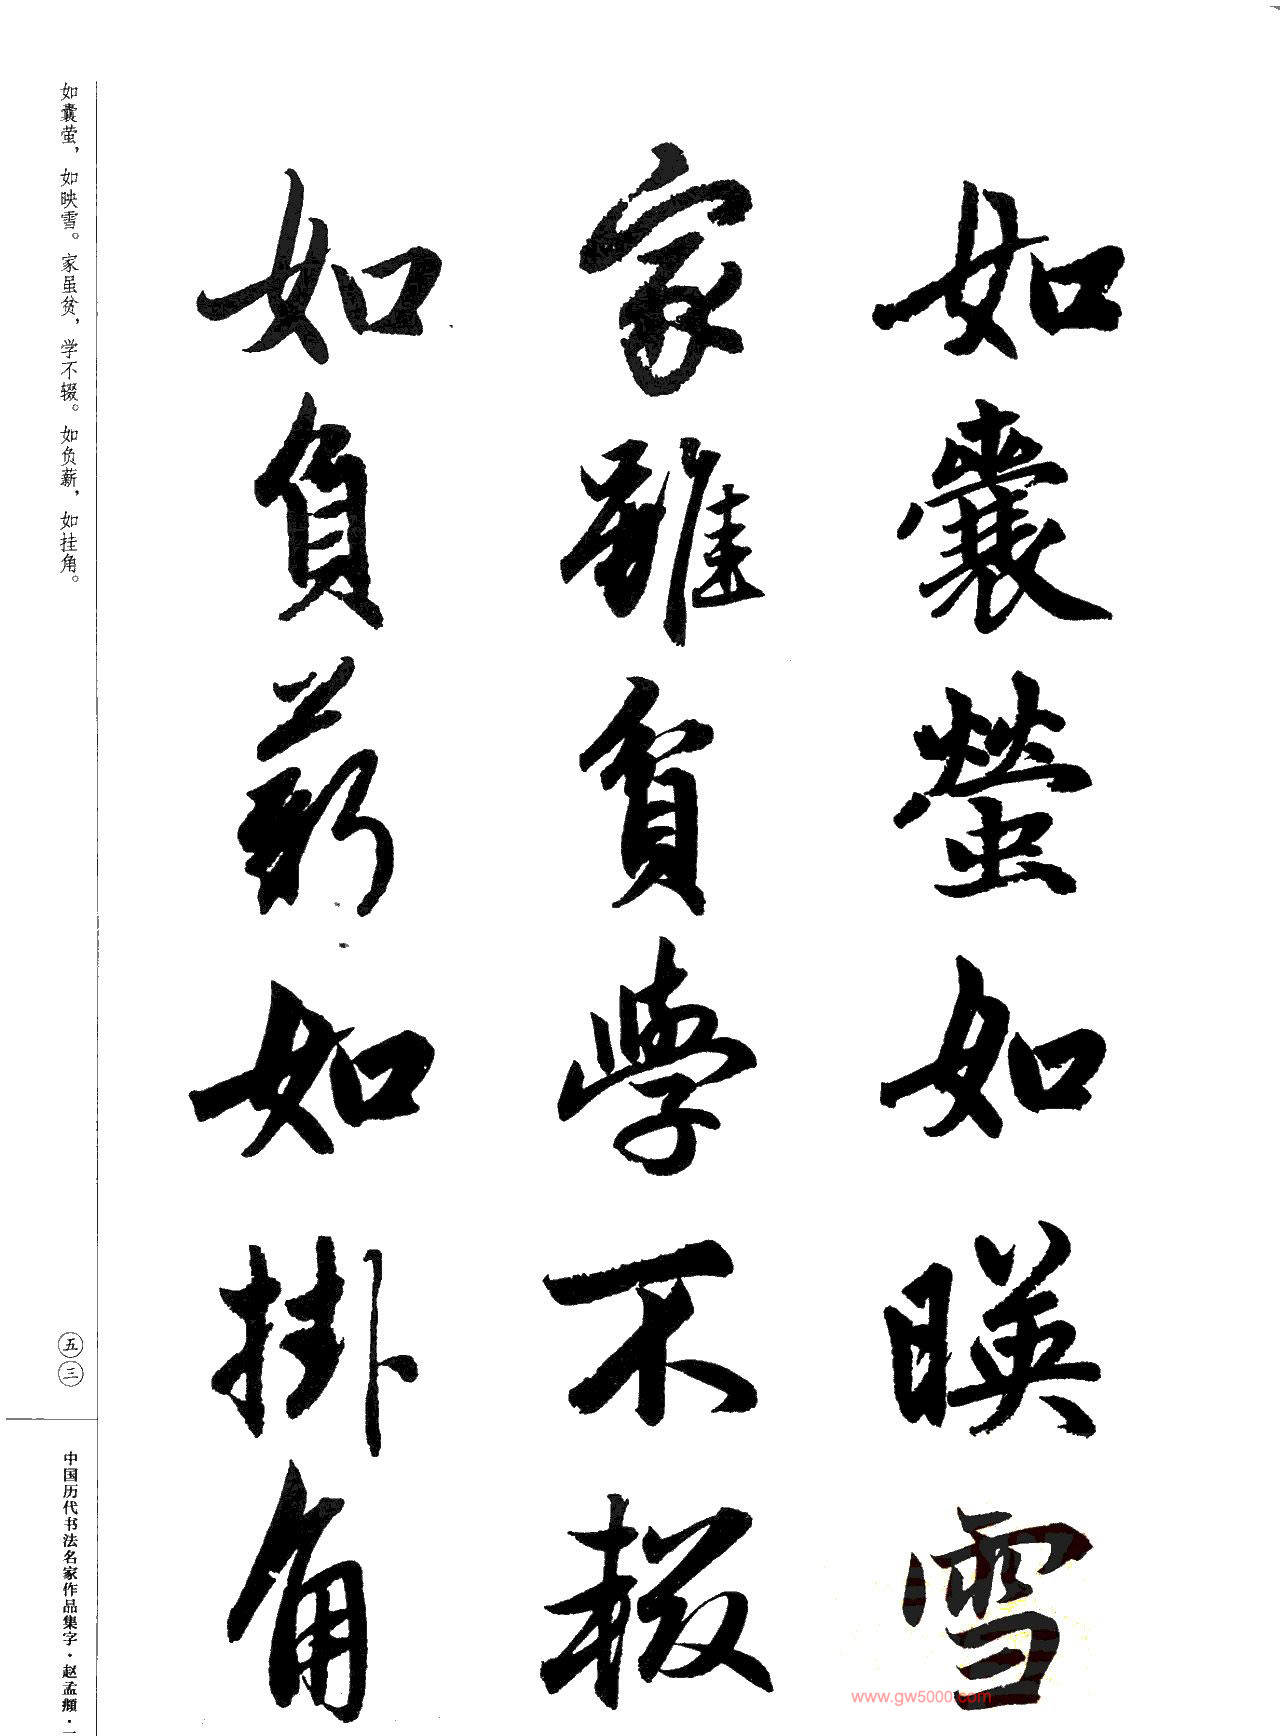 如囊螢如暎雪
家雖貧學不輟
如負薪如掛角
如囊萤，如映雪。家虽贫，学不辍。如负薪，如挂角。
五三
中国历代书法名家作品集字·赵孟頫·一
www.gw5000.com